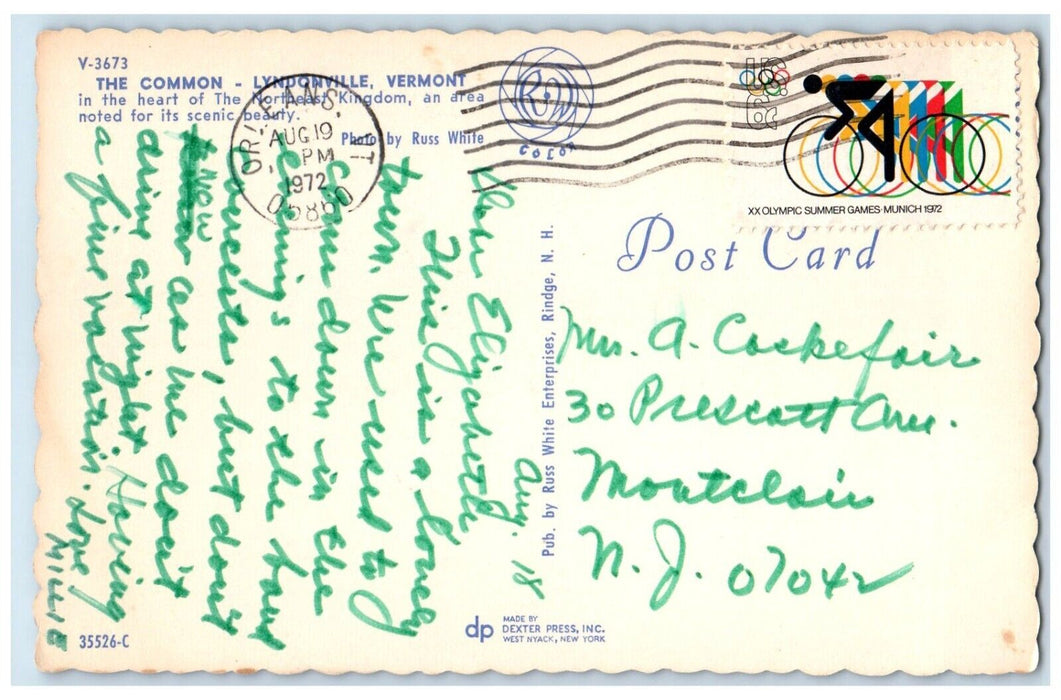 V-3673
THE COMMON - LYNDONVILLE, VERMONT
in the heart of The Northeast Kingdom, an area
noted for its scenic beauty.
Photo by Russ White
COLOR
ORLEANS VT
AUG 19
PM
1972
05860
US
6c
XX OLYMPIC SUMMER GAMES·MUNICH 1972
Post Card
Aug. 18
Dear Elizabeth
This is a lovely
town. We used to
come down in the
evenings to the band
concerts, but don't
now as we don't
drive at night. Having
a fine vacation. Love
MILLIE
Mrs. A. Cockefair
30 Prescott Ave.
Montclair
N.J. 07042
Pub. by Russ White Enterprises, Rindge, N. H.
35526-C
dp
MADE BY
DEXTER PRESS, INC.
WEST NYACK, NEW YORK